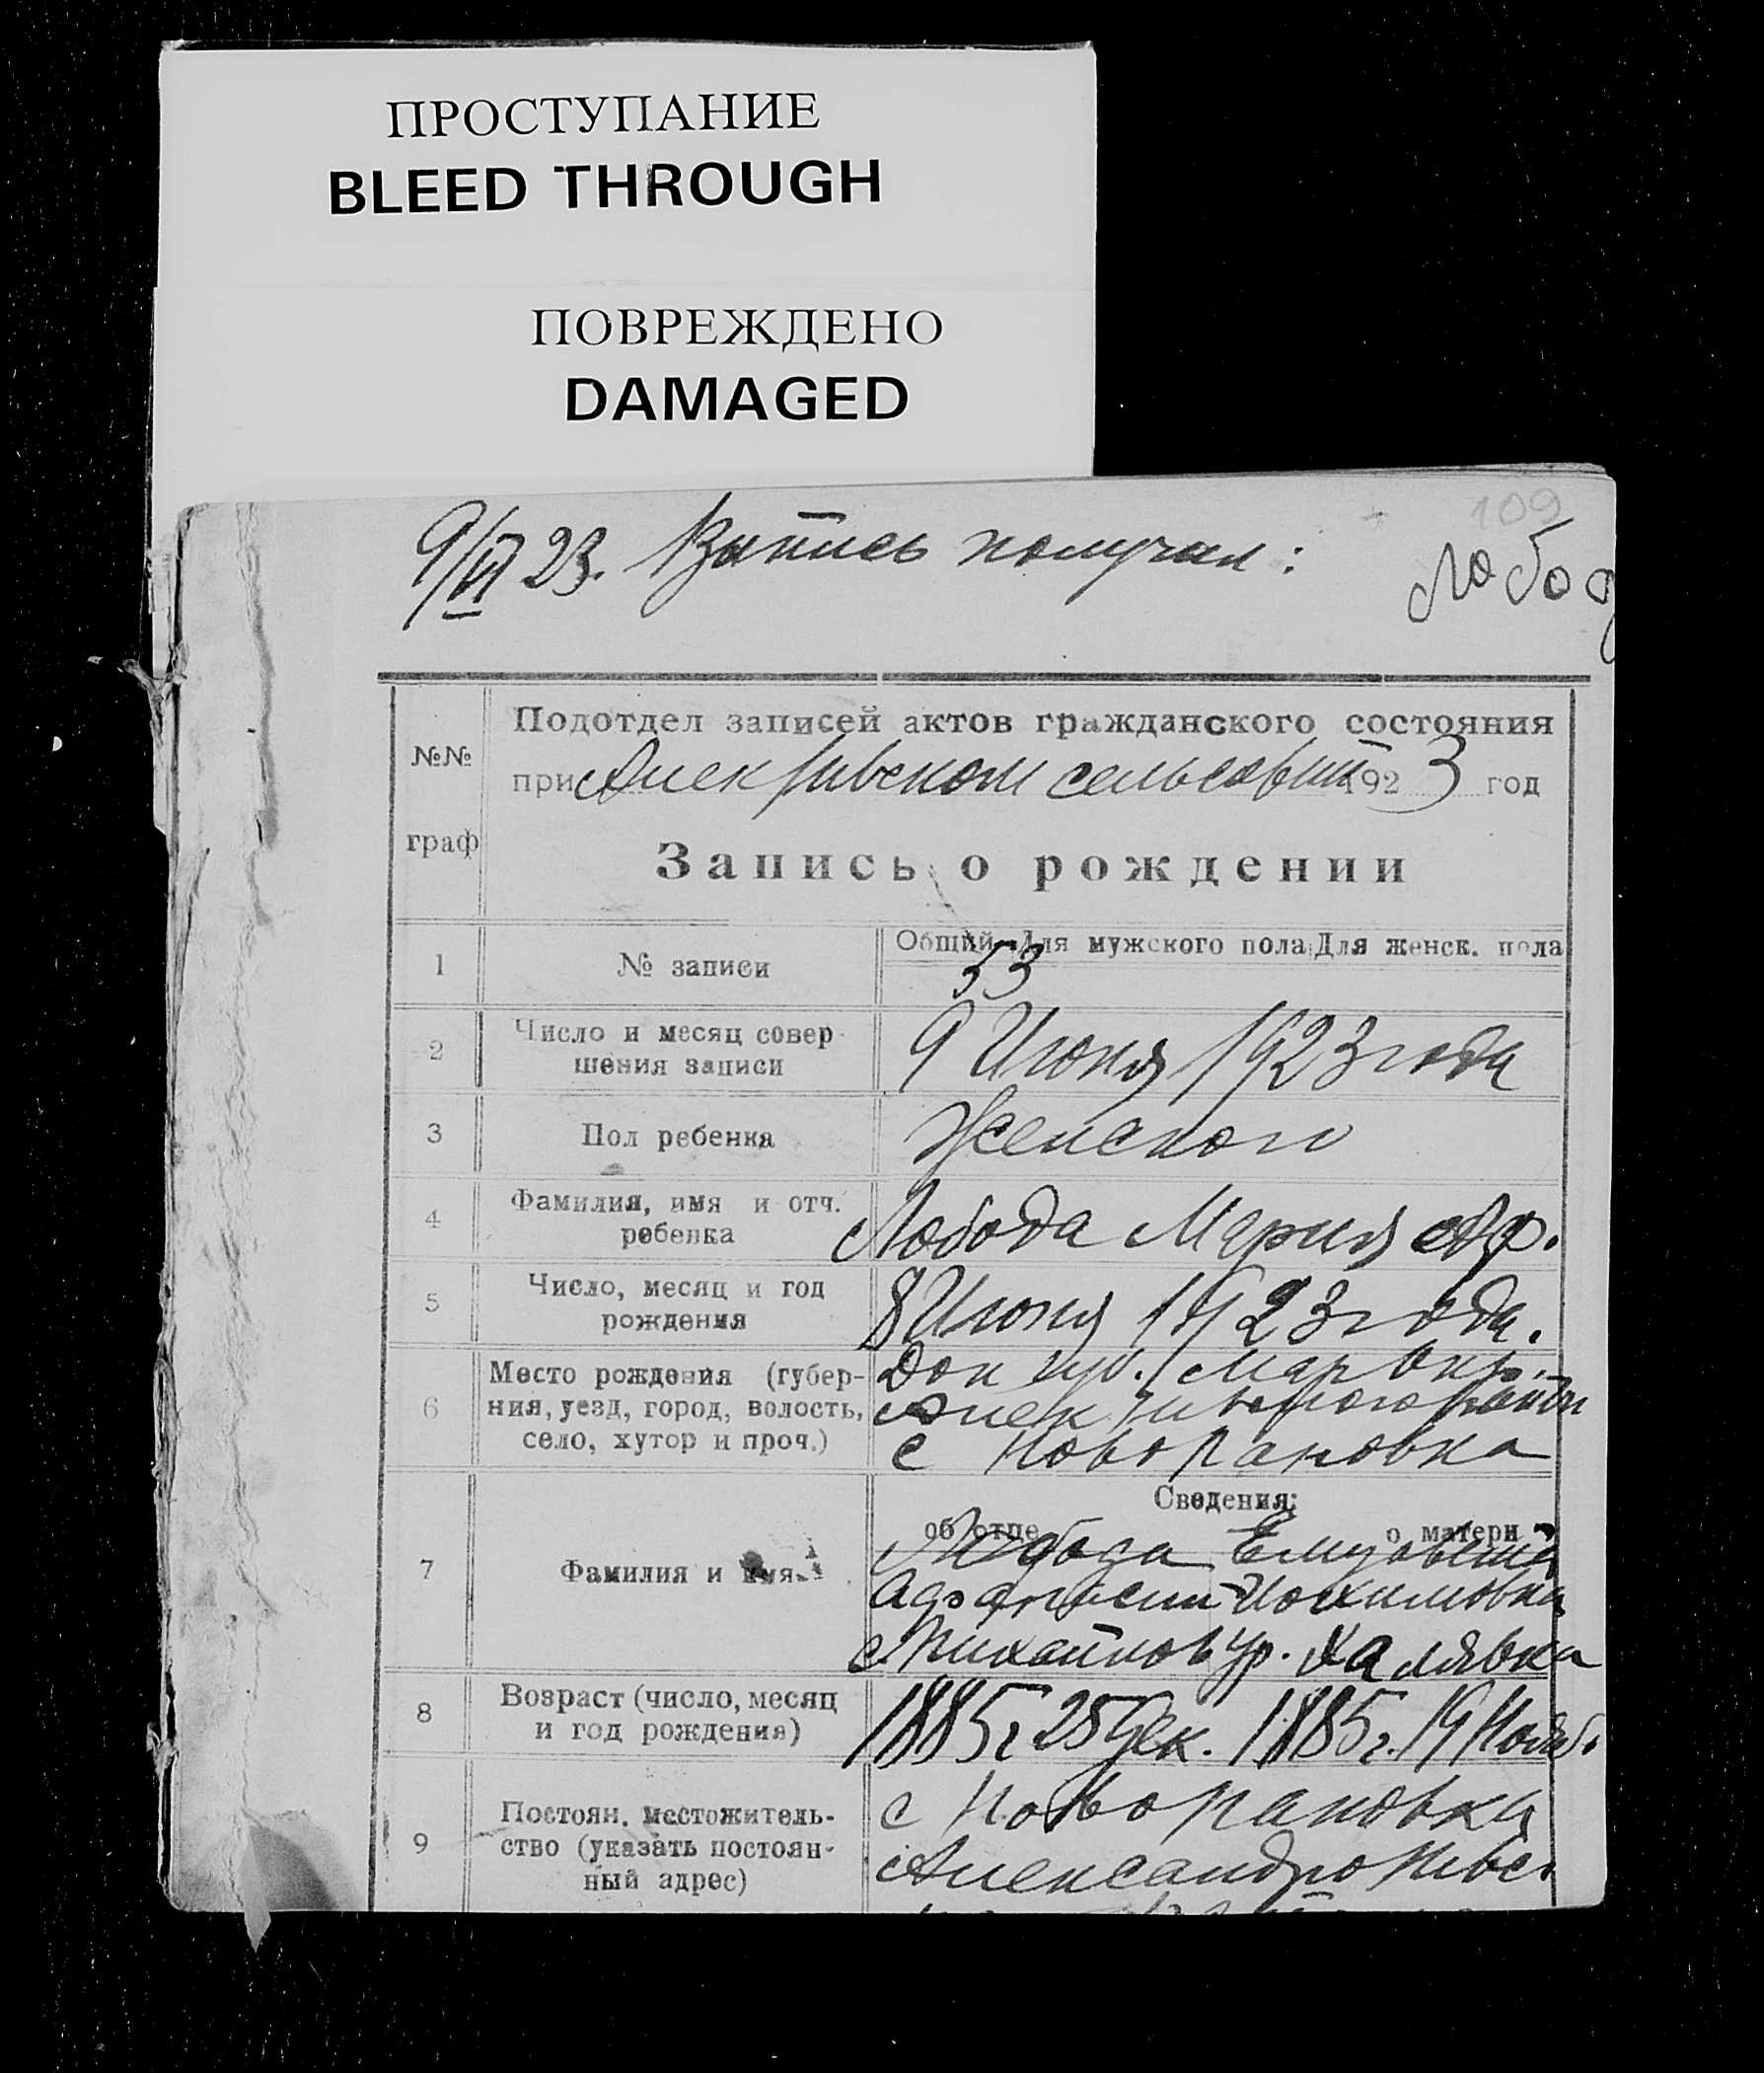 ПРОСТУПАНИЕ
BLEED THROUGH
ПОВРЕЖДЕНО
DAMAGED
109
9/VI 23. получил: Лобод
Подотдел записей актов гражданского состояния
№№
при сельсовит 1923 год
граф
Запись о рождении
Общий Для мужского пола Для женск. пола
1 № записи 53
2 Число и месяц совер-
шения записи 9 Июня 1923 года
3 Пол ребенка Женского
4 Фамилия, имя и отч.
ребенка Лобода Мария Аф.
5 Число, месяц и год
рождения 8 Июня 1923 года.
6 Место рождения (губер-
ния, уезд, город, волость,
село, хутор и проч.)
Дон губ. Мар Окр.
с
Сведения:
об отце о матери
7 Фамилия и имя
Лобода
Михайлов ур. Халявка
8 Возраст (число, месяц
и год рождения)
1885 г 25 Дек. 1885 г. 19 Нояб.
9 Постоян. местожитель-
ство (указать постоян-
ный адрес)
с